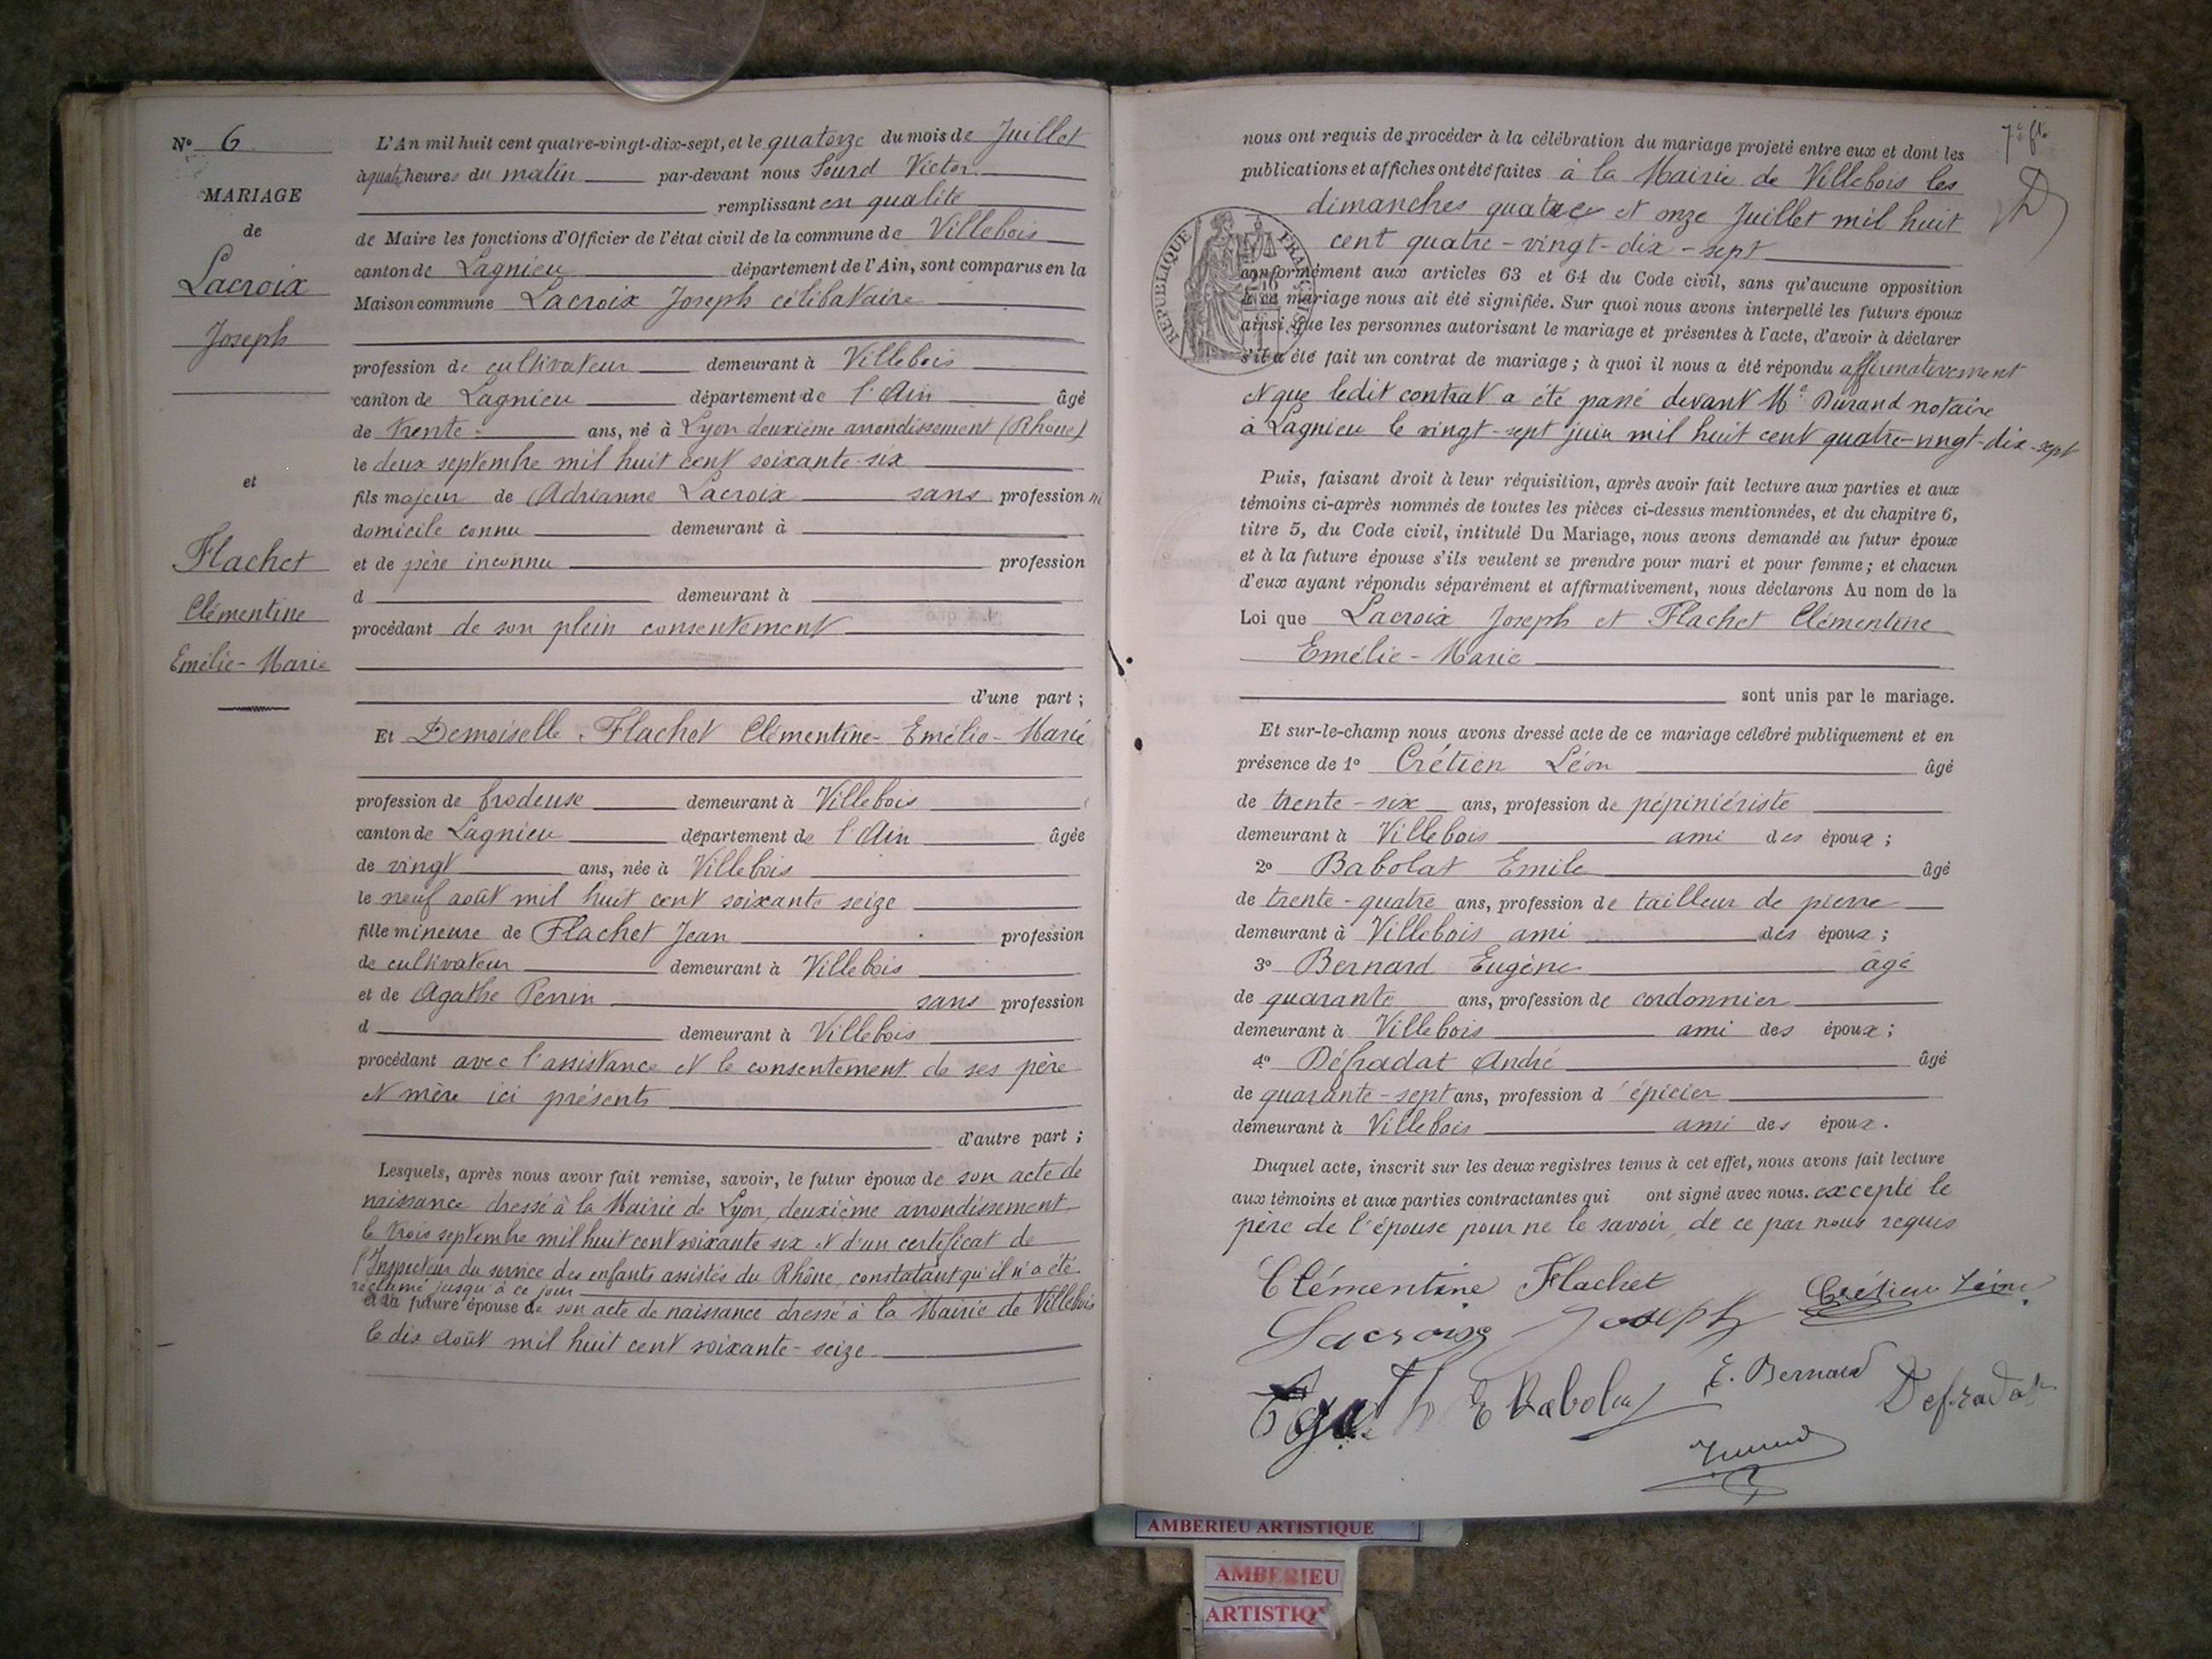 N° 6
MARIAGE
de
Lacroix
Joseph
et
Flachet
Clémentine
Emélie-Marie
L'An mil huit cent quatre-vingt-dix-sept, et le quatorze du mois de Juillet
à quatre heures du matin par-devant nous Sourd Victor
remplissant en qualité
de Maire les fonctions d'Officier de l'état civil de la commune de Villebois
canton de Lagnieu département de l'Ain, sont comparus en la
Maison commune Lacroix Joseph célibataire
profession de cultivateur demeurant à Villebois
canton de Lagnieu département de l'Ain âgé
de trente ans, né à Lyon deuxième arrondissement (Rhône)
le deux septembre mil huit cent soixante-six
fils majeur de Adrianne Lacroix sans profession ni
domicile connu demeurant à
et de père inconnu profession
d demeurant à
procédant de son plein consentement
d'une part ;
Et Demoiselle Flachet Clémentine-Emélie-Marie
profession de brodeuse demeurant à Villebois
canton de Lagnieu département de l'Ain âgée
de vingt ans, née à Villebois
le neuf août mil huit cent soixante seize
fille mineure de Flachet Jean profession
de cultivateur demeurant à Villebois
et de Agathe Perrin sans profession
d demeurant à Villebois
procédant avec l'assistance et le consentement de ses père
et mère ici présents
d'autre part ;
Lesquels, après nous avoir fait remise, savoir, le futur époux de son acte de
naissance dressé à la Mairie de Lyon, deuxième arrondissement
le trois septembre mil huit cent soixante six et d'un certificat de
l'Inspecteur du service des enfants assistés du Rhône, constatant qu'il n'a été
réclamé jusqu'à ce jour
et la future épouse de son acte de naissance dressé à la Mairie de Villebois
le dix Août mil huit cent soixante-seize
nous ont requis de procéder à la célébration du mariage projeté entre eux et dont les
publications et affiches ont été faites à la Mairie de Villebois les
dimanches quatre et onze Juillet mil huit
cent quatre-vingt-dix-sept
conformément aux articles 63 et 64 du Code civil, sans qu'aucune opposition
à ce mariage nous ait été signifiée. Sur quoi nous avons interpellé les futurs époux
ainsi que les personnes autorisant le mariage et présentes à l'acte, d'avoir à déclarer
s'il a été fait un contrat de mariage ; à quoi il nous a été répondu affirmativement
et que ledit contrat a été passé devant Me Durand notaire
à Lagnieu le vingt-sept juin mil huit cent quatre-vingt-dix-sept
REPUBLIQUE FRANÇAISE
Puis, faisant droit à leur réquisition, après avoir fait lecture aux parties et aux
témoins ci-après nommés de toutes les pièces ci-dessus mentionnées, et du chapitre 6,
titre 5, du Code civil, intitulé Du Mariage, nous avons demandé au futur époux
et à la future épouse s'ils veulent se prendre pour mari et pour femme ; et chacun
d'eux ayant répondu séparément et affirmativement, nous déclarons Au nom de la
Loi que Lacroix Joseph et Flachet Clémentine
Emélie-Marie
sont unis par le mariage.
Et sur-le-champ nous avons dressé acte de ce mariage célébré publiquement et en
présence de 1° Crétien Léon âgé
de trente-six ans, profession de pépiniériste
demeurant à Villebois ami des époux ;
2° Babolat Emile âgé
de trente-quatre ans, profession de tailleur de pierre
demeurant à Villebois ami des époux ;
3° Bernard Eugène âgé
de quarante ans, profession de cordonnier
demeurant à Villebois ami des époux ;
4° Défradat André âgé
de quarante-sept ans, profession d'épicier
demeurant à Villebois ami des époux.
Duquel acte, inscrit sur les deux registres tenus à cet effet, nous avons fait lecture
aux témoins et aux parties contractantes qui ont signé avec nous. excepté le
père de l'épouse pour ne le savoir, de ce par nous requis
Clémentine Flachet Crétien Léon
Lacroix Joseph
E Babolat E. Bernard Defradat
AMBERIEU ARTISTIQUE
AMBERIEU
ARTISTIQ